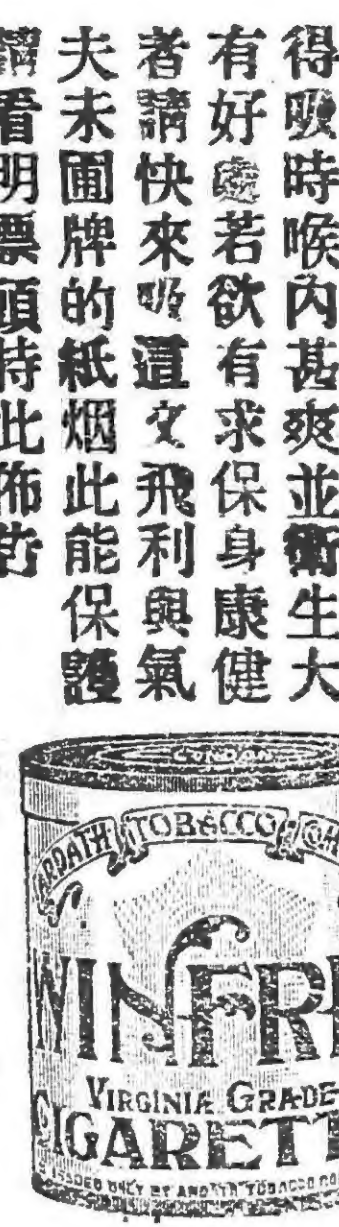 得吸時喉內甚爽並衛生大
有好處若欲有求保身康健
者請快來吸這文飛利與氣
夫未圃牌的紙烟此能保護
請看明票頭特此佈告
ARDATH TOBACCO
WINFRE
VIRGINIA GRADE
CIGARETT
ISSUED ONLY BY ARDATH TOBACCO CO